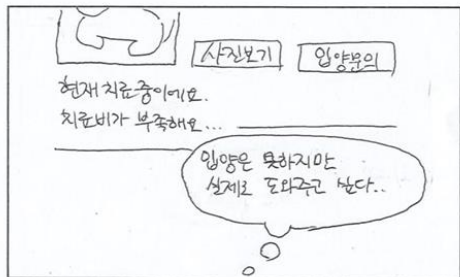 사진보기
입양문의
현재 치료중이에요.
치료비가 부족해요...
입양은 못하지만
실제로 도와주고 싶다..